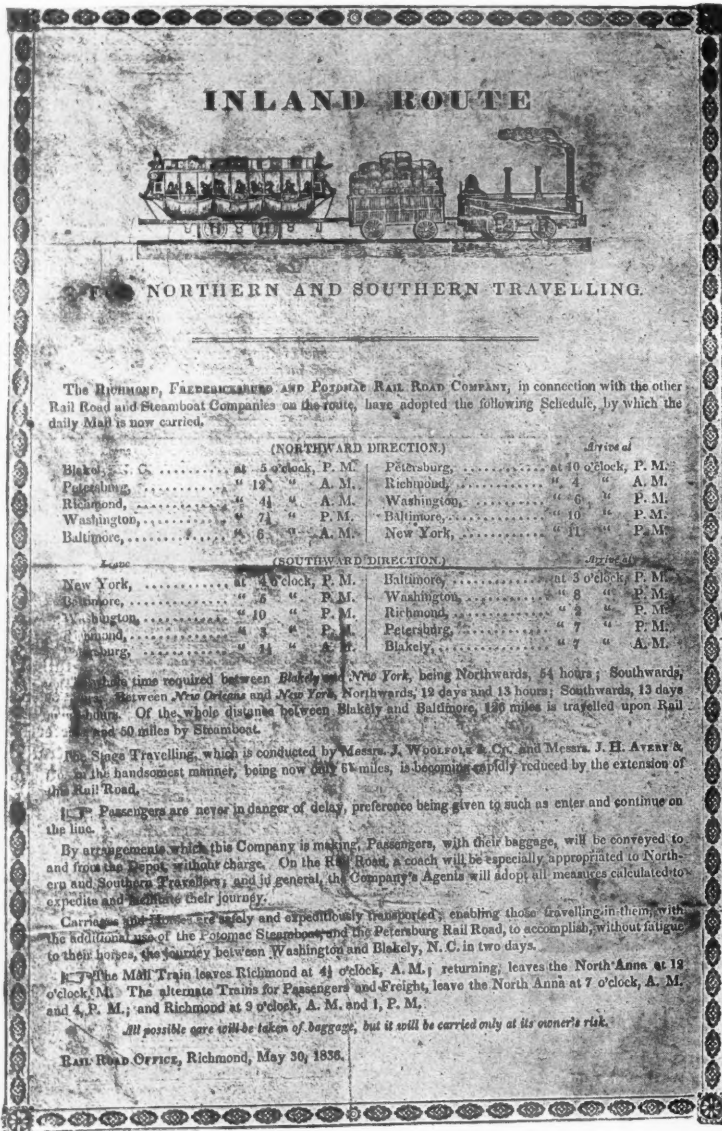 INLAND ROUTE
NORTHERN AND SOUTHERN TRAVELLING.
The RICHMOND, FREDERICKSBURG AND POTOMAC RAIL ROAD COMPANY, in connection with the other
Rail Road and Steamboat Companies on the route, have adopted the following Schedule, by which the
daily Mail is now carried.
(NORTHWARD DIRECTION.) Arrive at
at 5 o'clock, P. M. Petersburg, at 10 o'clock, P. M.
Petersburg, " 12 " A. M. Richmond, " 4 " A. M.
Richmond, " 4½ " A. M. Washington, " 6 " P. M.
Washington, " 7½ " P. M. Baltimore, " 10 " P. M.
Baltimore, " 6 " A. M. New York, " 11 " P. M.
Leave (SOUTHWARD DIRECTION.) Arrive at
New York, at 4 o'clock, P. M. Baltimore, at 3 o'clock, P. M.
Baltimore, " 5 " P. M. Washington, " 8 " P. M.
Washington, " 10 " P. M. Richmond, " 2 " P. M.
" 3 " P. M. Petersburg, " 7 " P. M.
" A. M. Blakely, " 7 " A. M.
time required between Blakely and New York, being Northwards, 54 hours; Southwards,
Between New Orleans and New York, Northwards, 12 days and 13 hours; Southwards, 13 days
hours. Of the whole distance between Blakely and Baltimore, 126 miles is travelled upon Rail
and 50 miles by Steamboat.
The Stage Travelling, which is conducted by Messrs. J. WOOLFOLK & Co. and Messrs. J. H. AVERY &
in the handsomest manner, being now only miles, is becoming rapidly reduced by the extension of
the Rail Road.
☞ Passengers are never in danger of delay, preference being given to such as enter and continue on
the line.
By arrangements which this Company is making, Passengers, with their baggage, will be conveyed to
and from the Depot, without charge. On the Rail Road, a coach will be especially appropriated to North-
ern and Southern Travellers; and in general, the Company's Agents will adopt all measures calculated to
expedite and facilitate their journey.
Carriages and Horses are safely and expeditiously transported; enabling those travelling in them, with
the additional use of the Potomac Steamboat, and the Petersburg Rail Road, to accomplish, without fatigue
to their horses, the journey between Washington and Blakely, N. C. in two days.
☞ The Mail Train leaves Richmond at 4½ o'clock, A. M.; returning, leaves the North Anna at 12
o'clock, M. The alternate Trains for Passengers and Freight, leave the North Anna at 7 o'clock, A. M.
and 4, P. M.; and Richmond at 9 o'clock, A. M. and 1, P. M.
All possible care will be taken of baggage, but it will be carried only at its owner's risk.
RAIL ROAD OFFICE, Richmond, May 30, 1836.